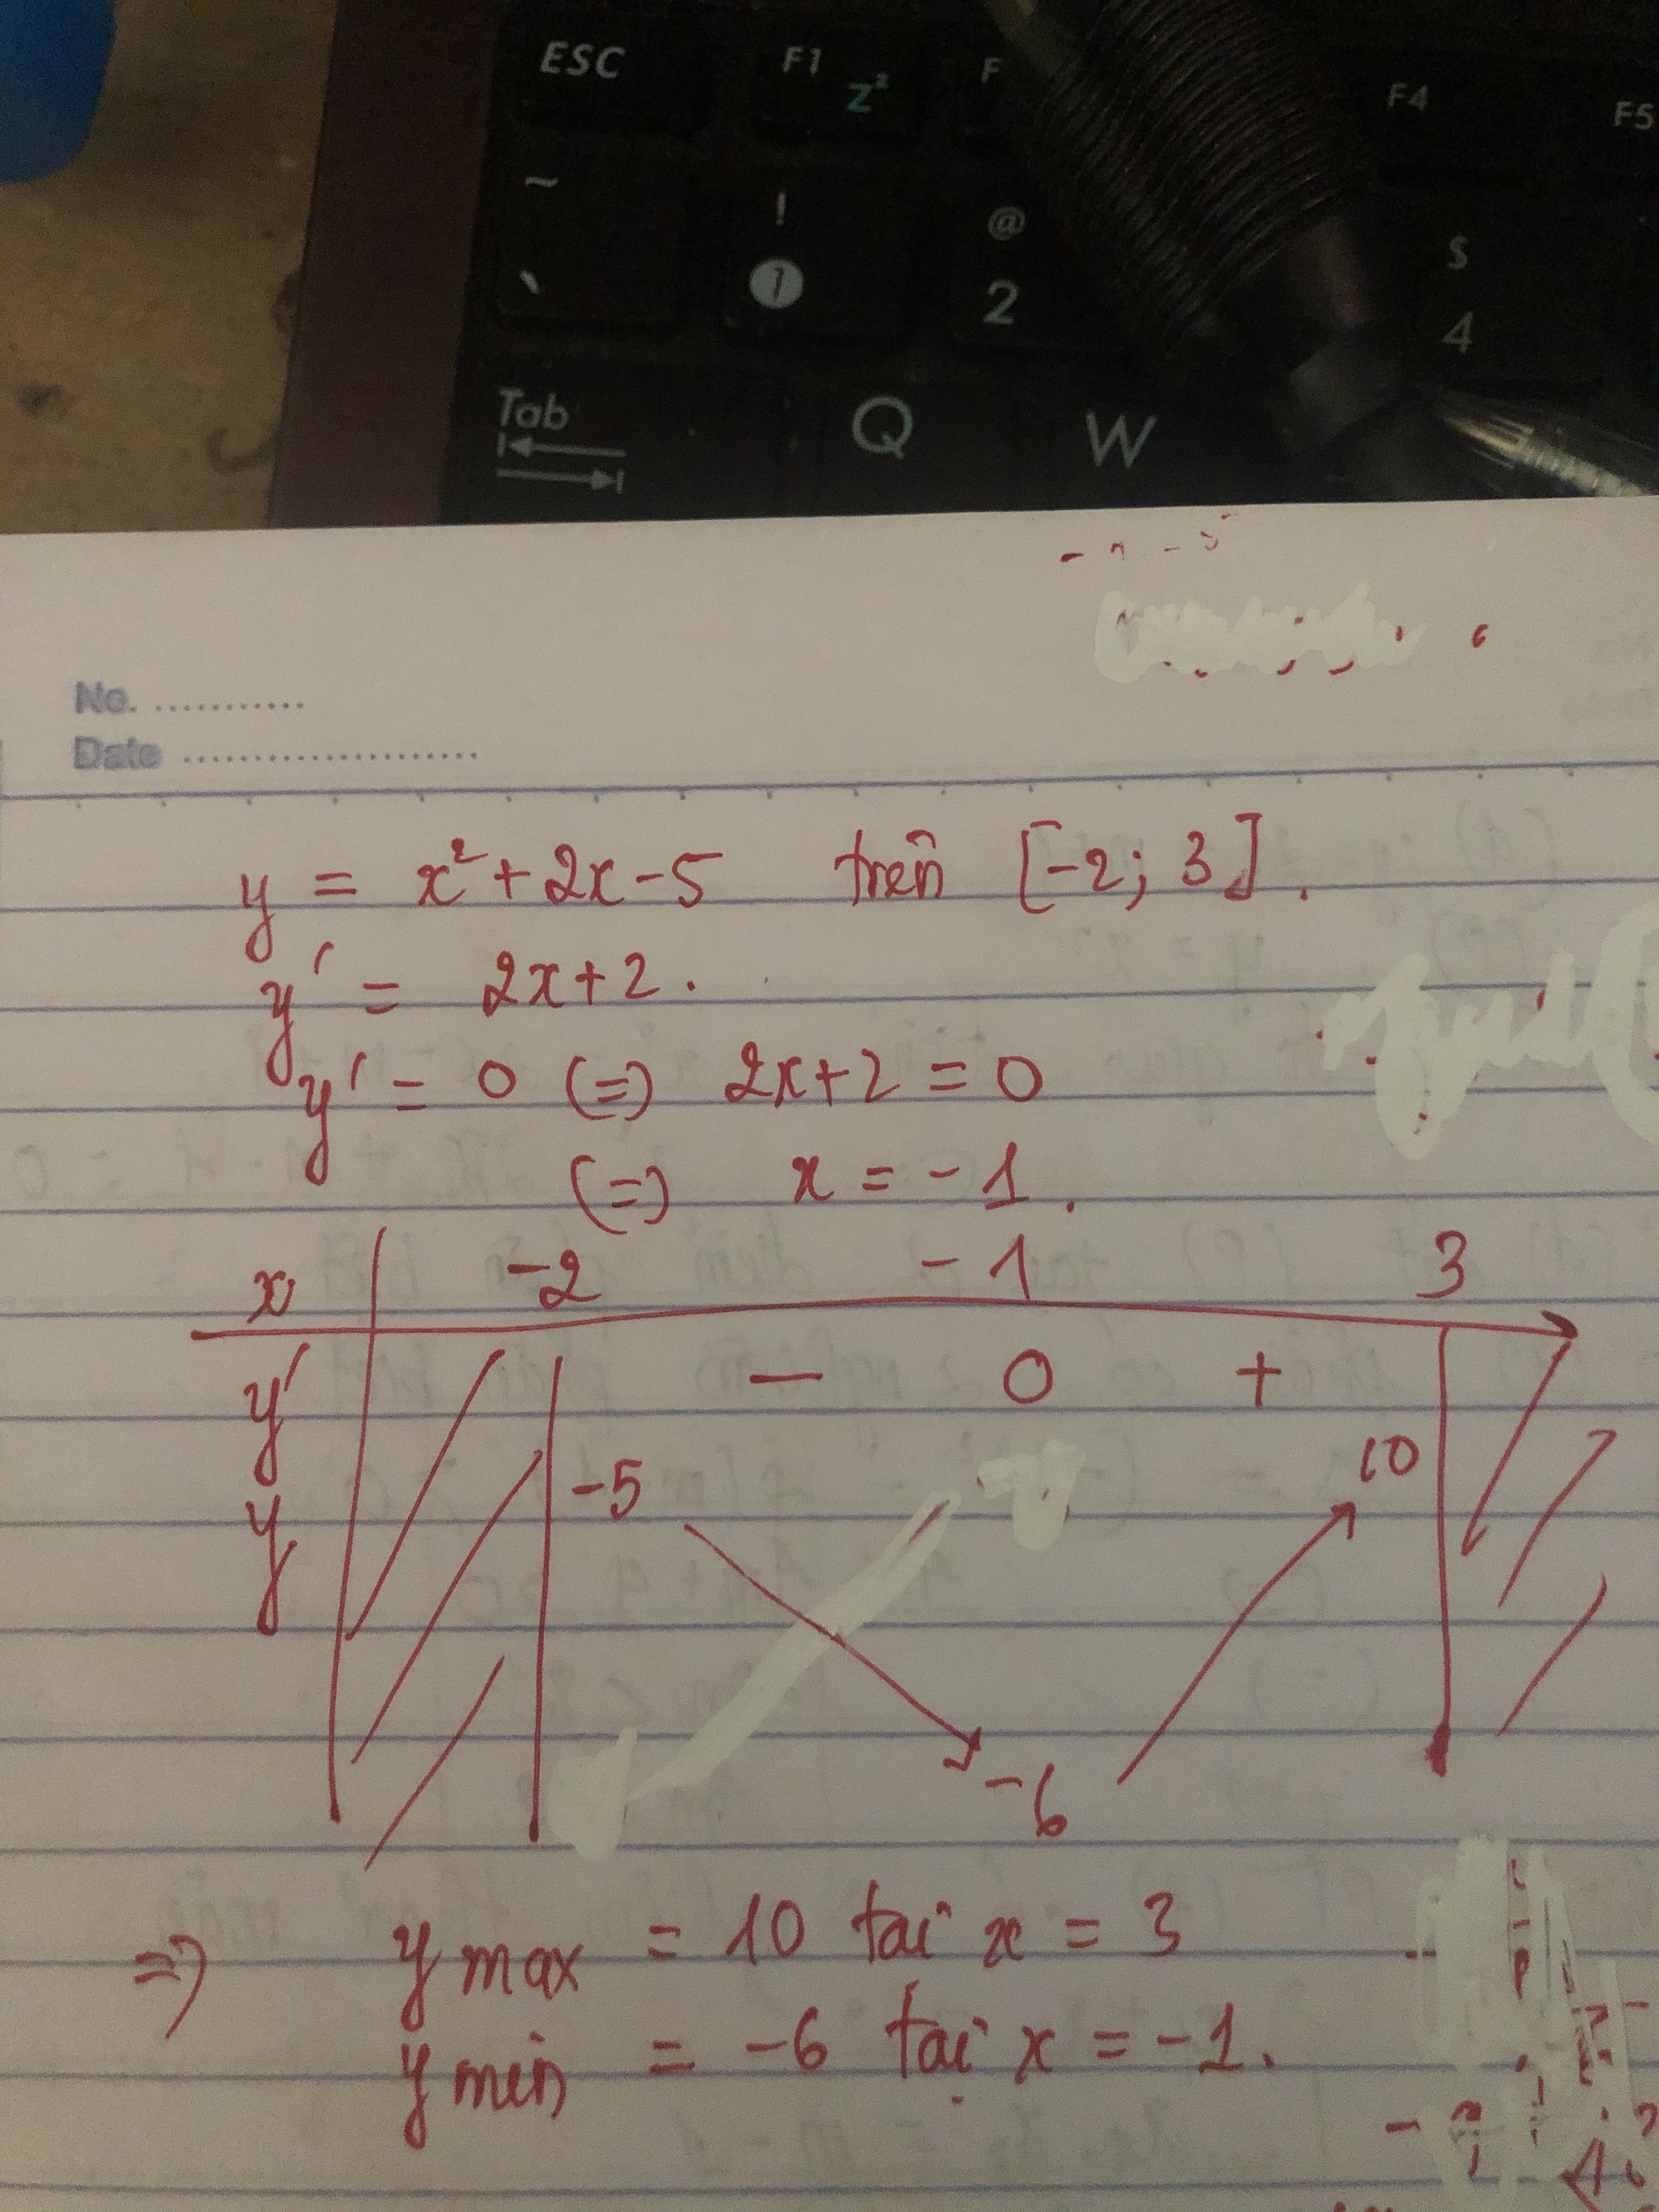 ESC F1 F F4 F5
z²
~ ! @ $
` 1 2 4
Tab Q W
No. ...........
Date ......................
y = x² + 2x - 5 trên [-2; 3].
y' = 2x + 2.
y' = 0 (=) 2x + 2 = 0
(=) x = -1.
x -2 -1 3
y' - 0 +
y -5 10
-6
=> y max = 10 tại x = 3
y min = -6 tại x = -1.